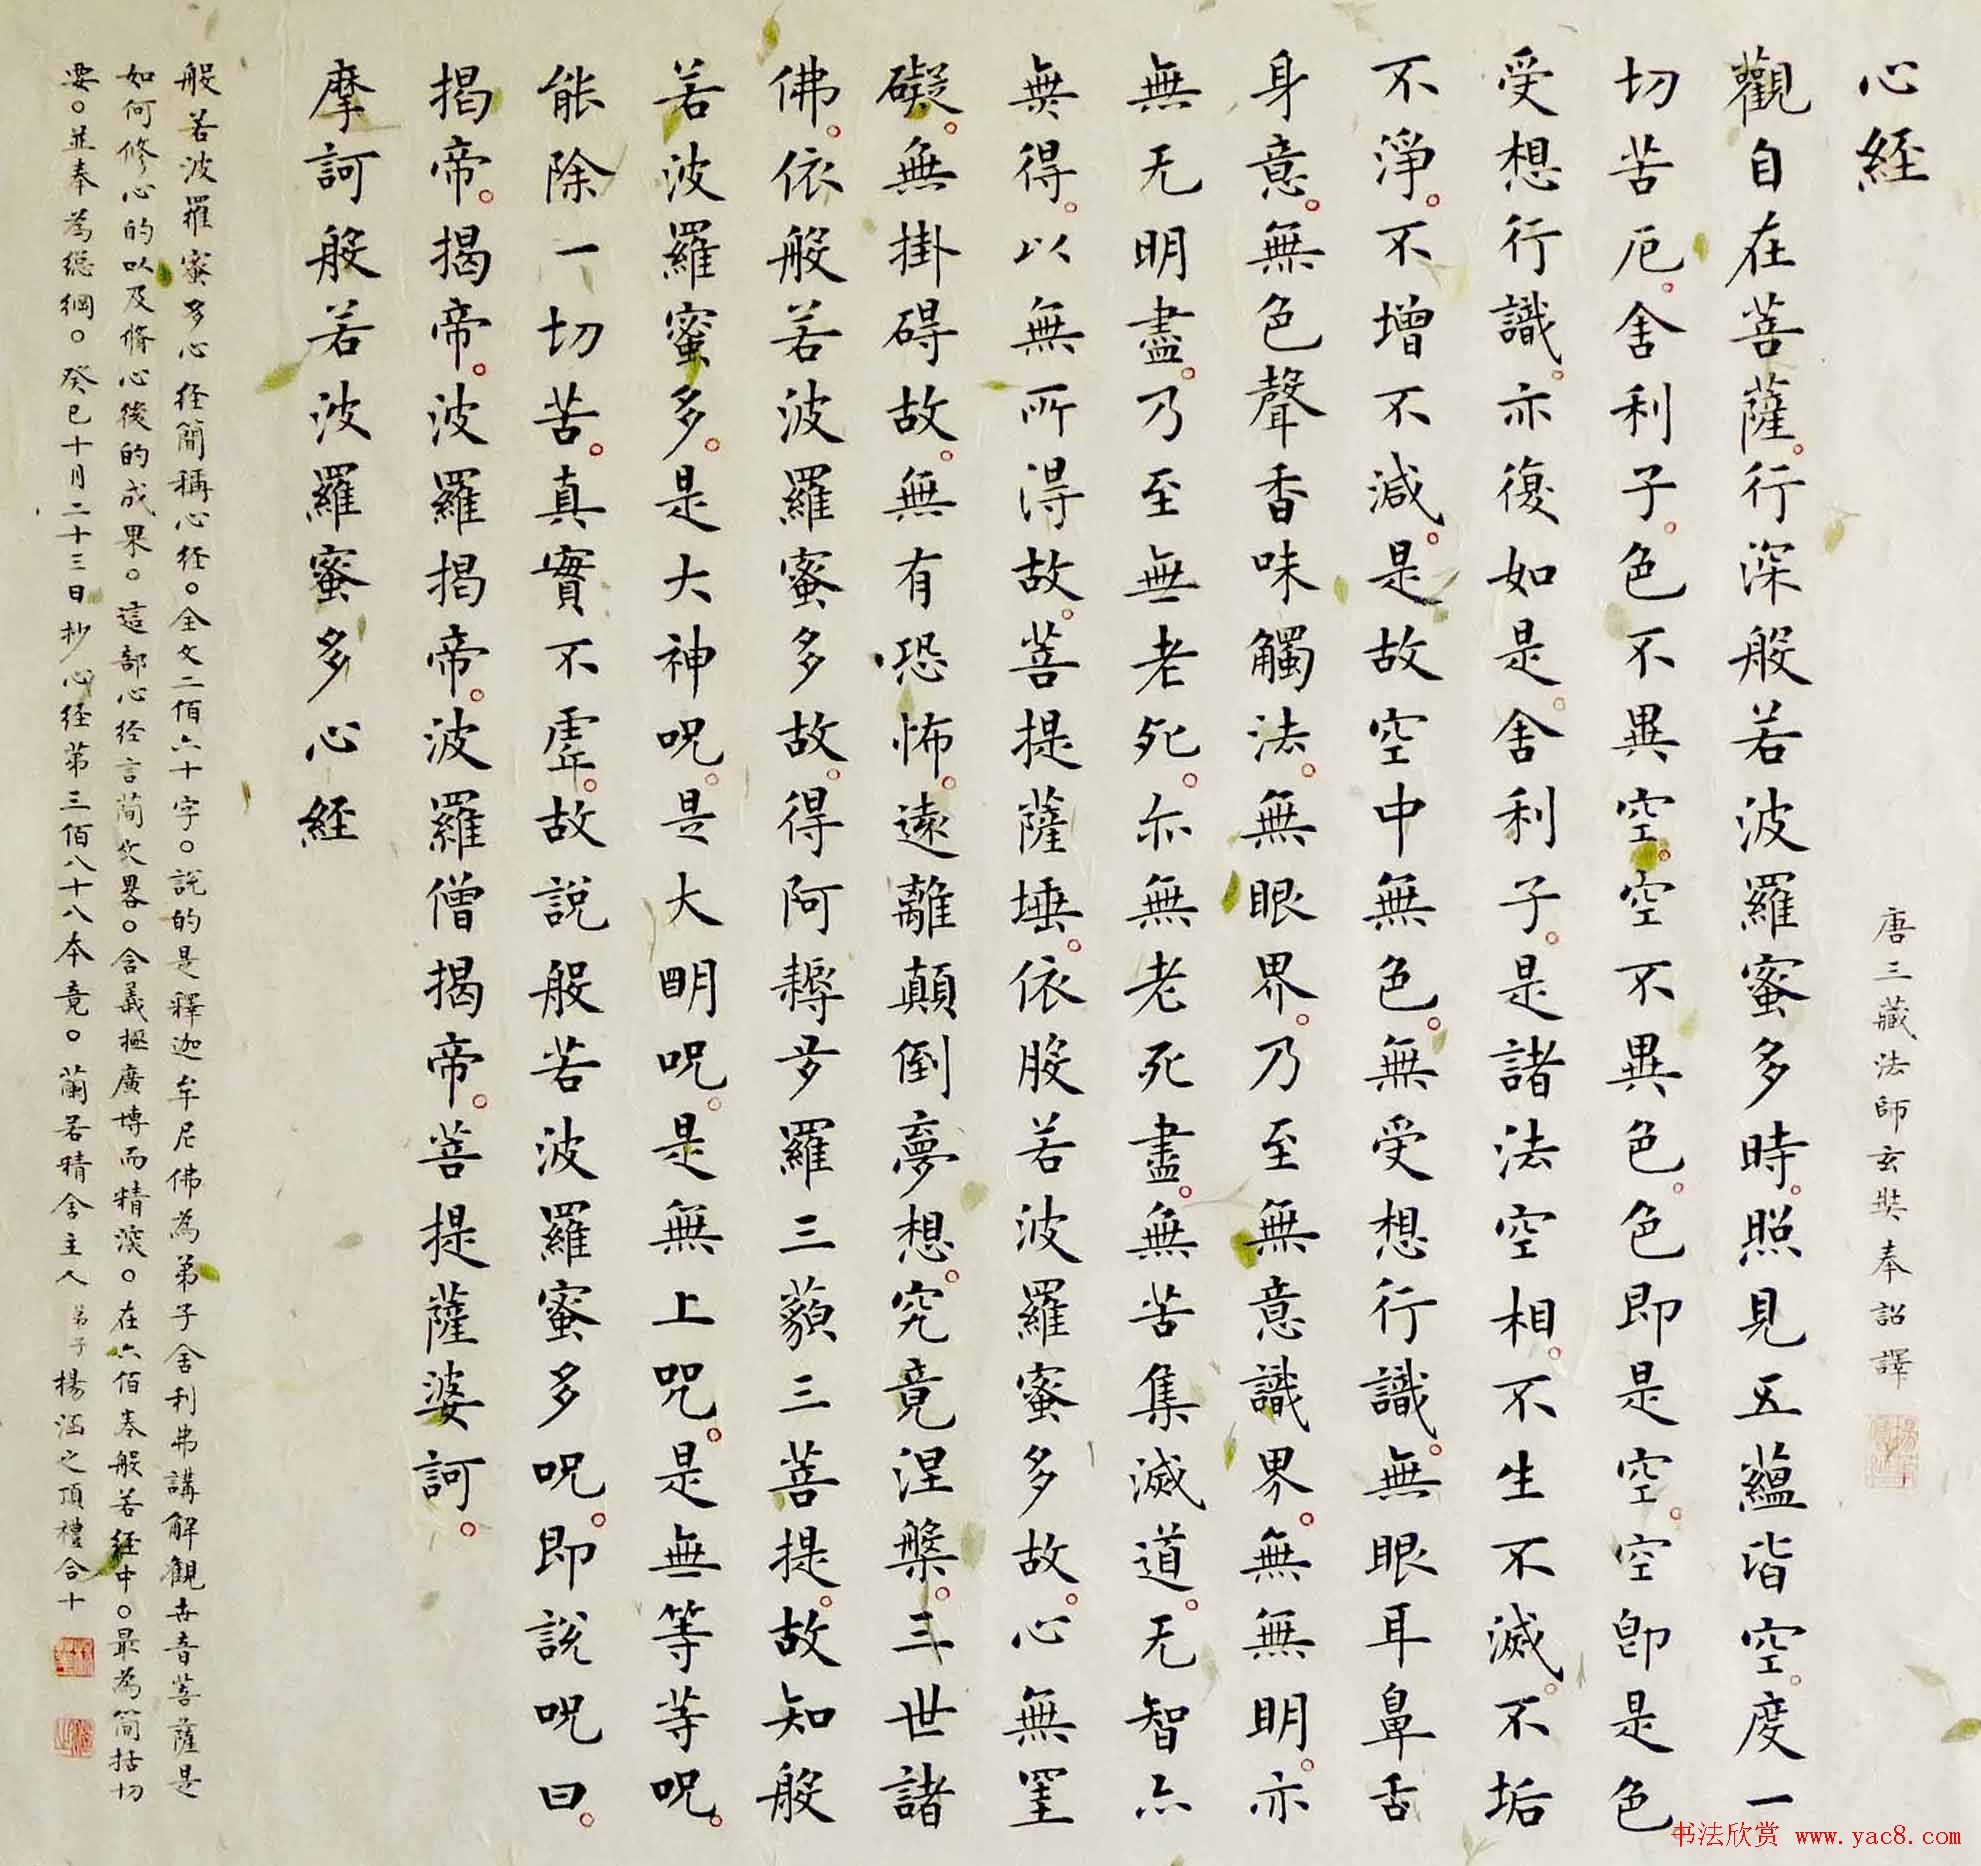 心経
唐三藏法師玄奘奉詔譯
觀自在菩薩。行深般若波羅蜜多時。照見五蘊皆空。度一
切苦厄。舍利子。色不異空。空不異色。色即是空。空即是色
受想行識。亦復如是。舍利子。是諸法空相。不生不滅。不垢
不淨。不增不減。是故空中無色。無受想行識。無眼耳鼻舌
身意。無色聲香味觸法。無眼界。乃至無意識界。無無明。亦
無无明盡。乃至無老死。亦無老死盡。無苦集滅道。无智亦
無得。以無所得故。菩提薩埵。依般若波羅蜜多故。心無罣
礙。無掛碍故。無有恐怖。遠離顛倒夢想。究竟涅槃。三世諸
佛。依般若波羅蜜多故。得阿耨多羅三藐三菩提。故知般
若波羅蜜多。是大神呪。是大明呪。是無上咒。是無等等呪。
能除一切苦。真實不虛。故說般若波羅蜜多呪。即說呪曰。
揭帝。揭帝。波羅揭帝。波羅僧揭帝。菩提薩婆訶。
摩訶般若波羅蜜多心経
般若波羅蜜多心経簡稱心経。全文二佰六十字。說的是釋迦牟尼佛為弟子舍利弗講解觀世音菩薩是
如何修心的以及脩心後的成果。這部心経言蕳文畧。含義極廣博而精深。在六佰卷般若経中。最為簡括切
要。並奉為總綱。癸巳十月二十三日抄心経第三佰八十八本竟。蘭若精舍主人弟子楊涵之頂禮合十
书法欣赏 www.yac8.com